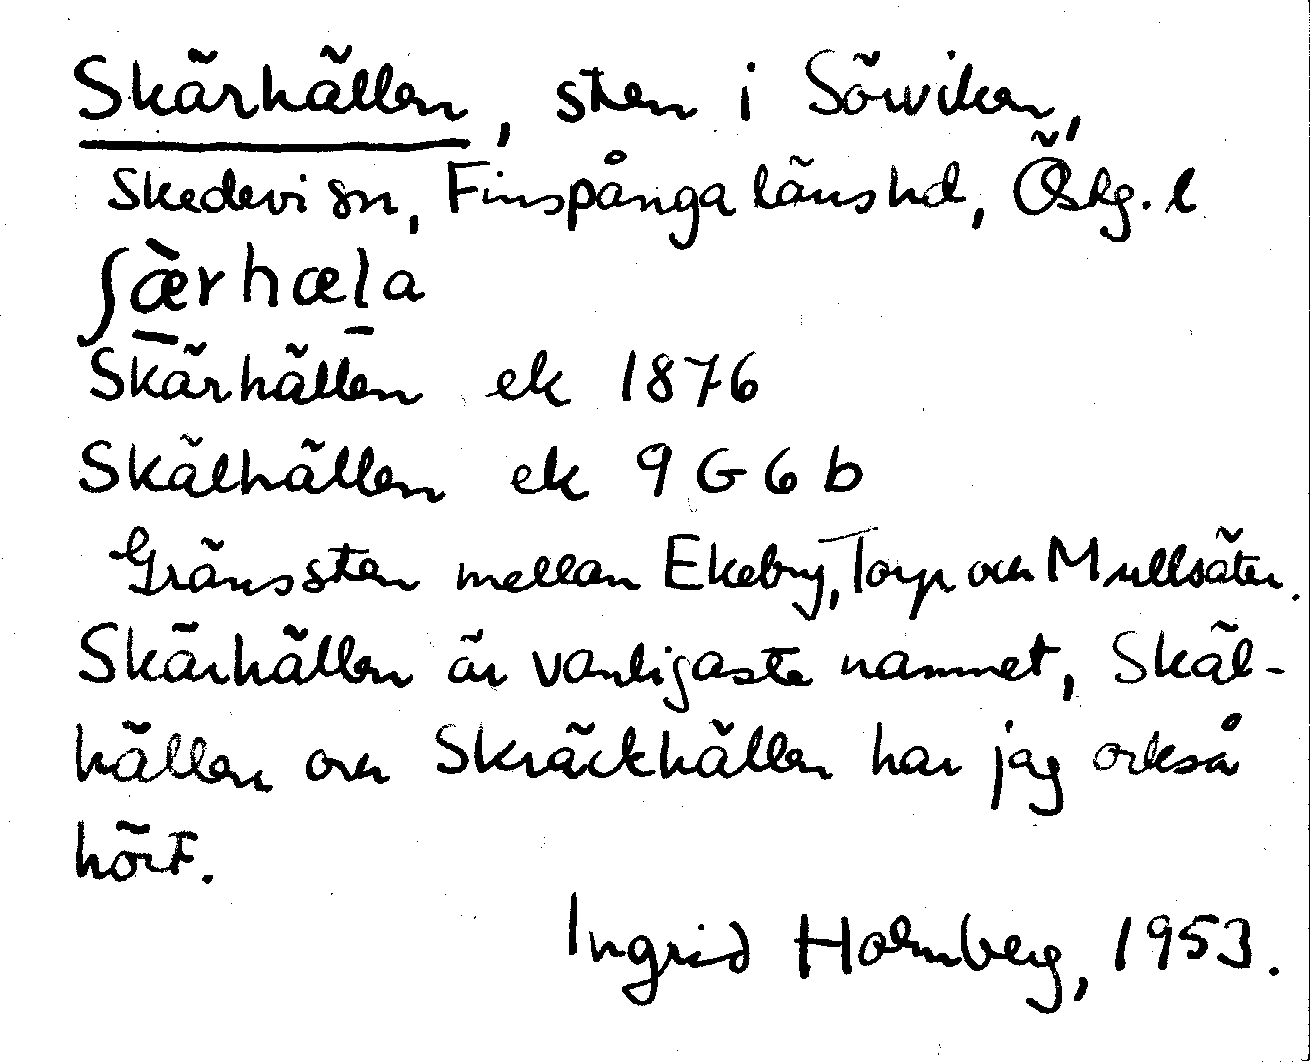 Skärhällen, sten i Sörviken,
Skedevi sn, Finspånga länshd, Östg. l
ʃæ̀rhæla
Skärhällen ek 1876
Skälhällen ek 9 G 6 b
Gränssten mellan Ekeby, Torp och Mullsäter.
Skärhällen är vanligaste namnet, Skäl-
hällen och Skräckhällen har jag också
hört.
Ingrid Holmberg, 1953.